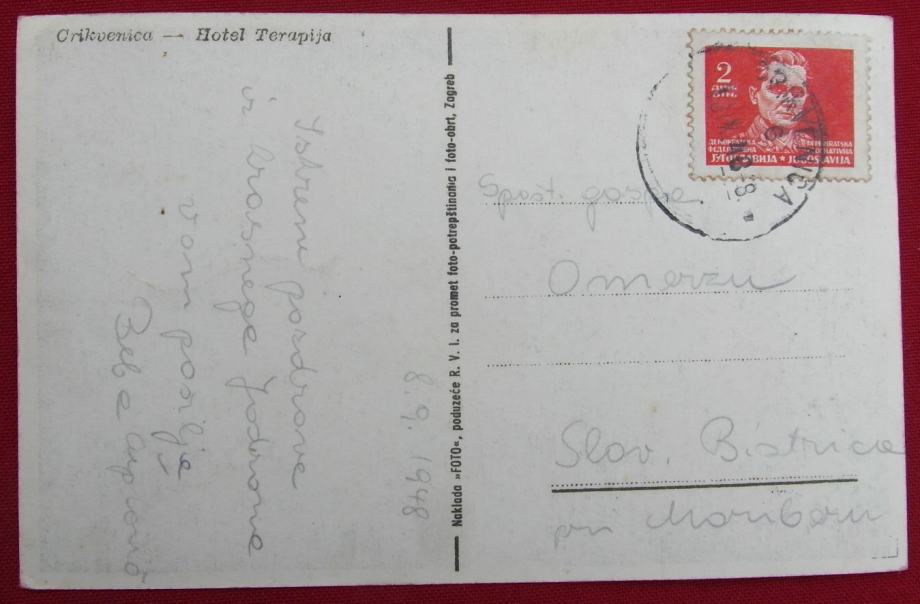 Crikvenica — Hotel Terapija
Iskrene pozdrave
iz krasnega Jadrana
vam pošilja
8. 9. 1948
Naklada »FOTO«, poduzeće R. V. I. za promet foto-potrepština i foto-obrt, Zagreb
2
ДЕМОКРАТСКА DEMOKRATSKA
ФЕДЕРАТИВНА FEDERATIVNA
ЈУГОСЛАВИЈА ★ JUGOSLAVIJA
Spošt. gospa
Omerzu
Slov. Bistrica
pri Mariboru